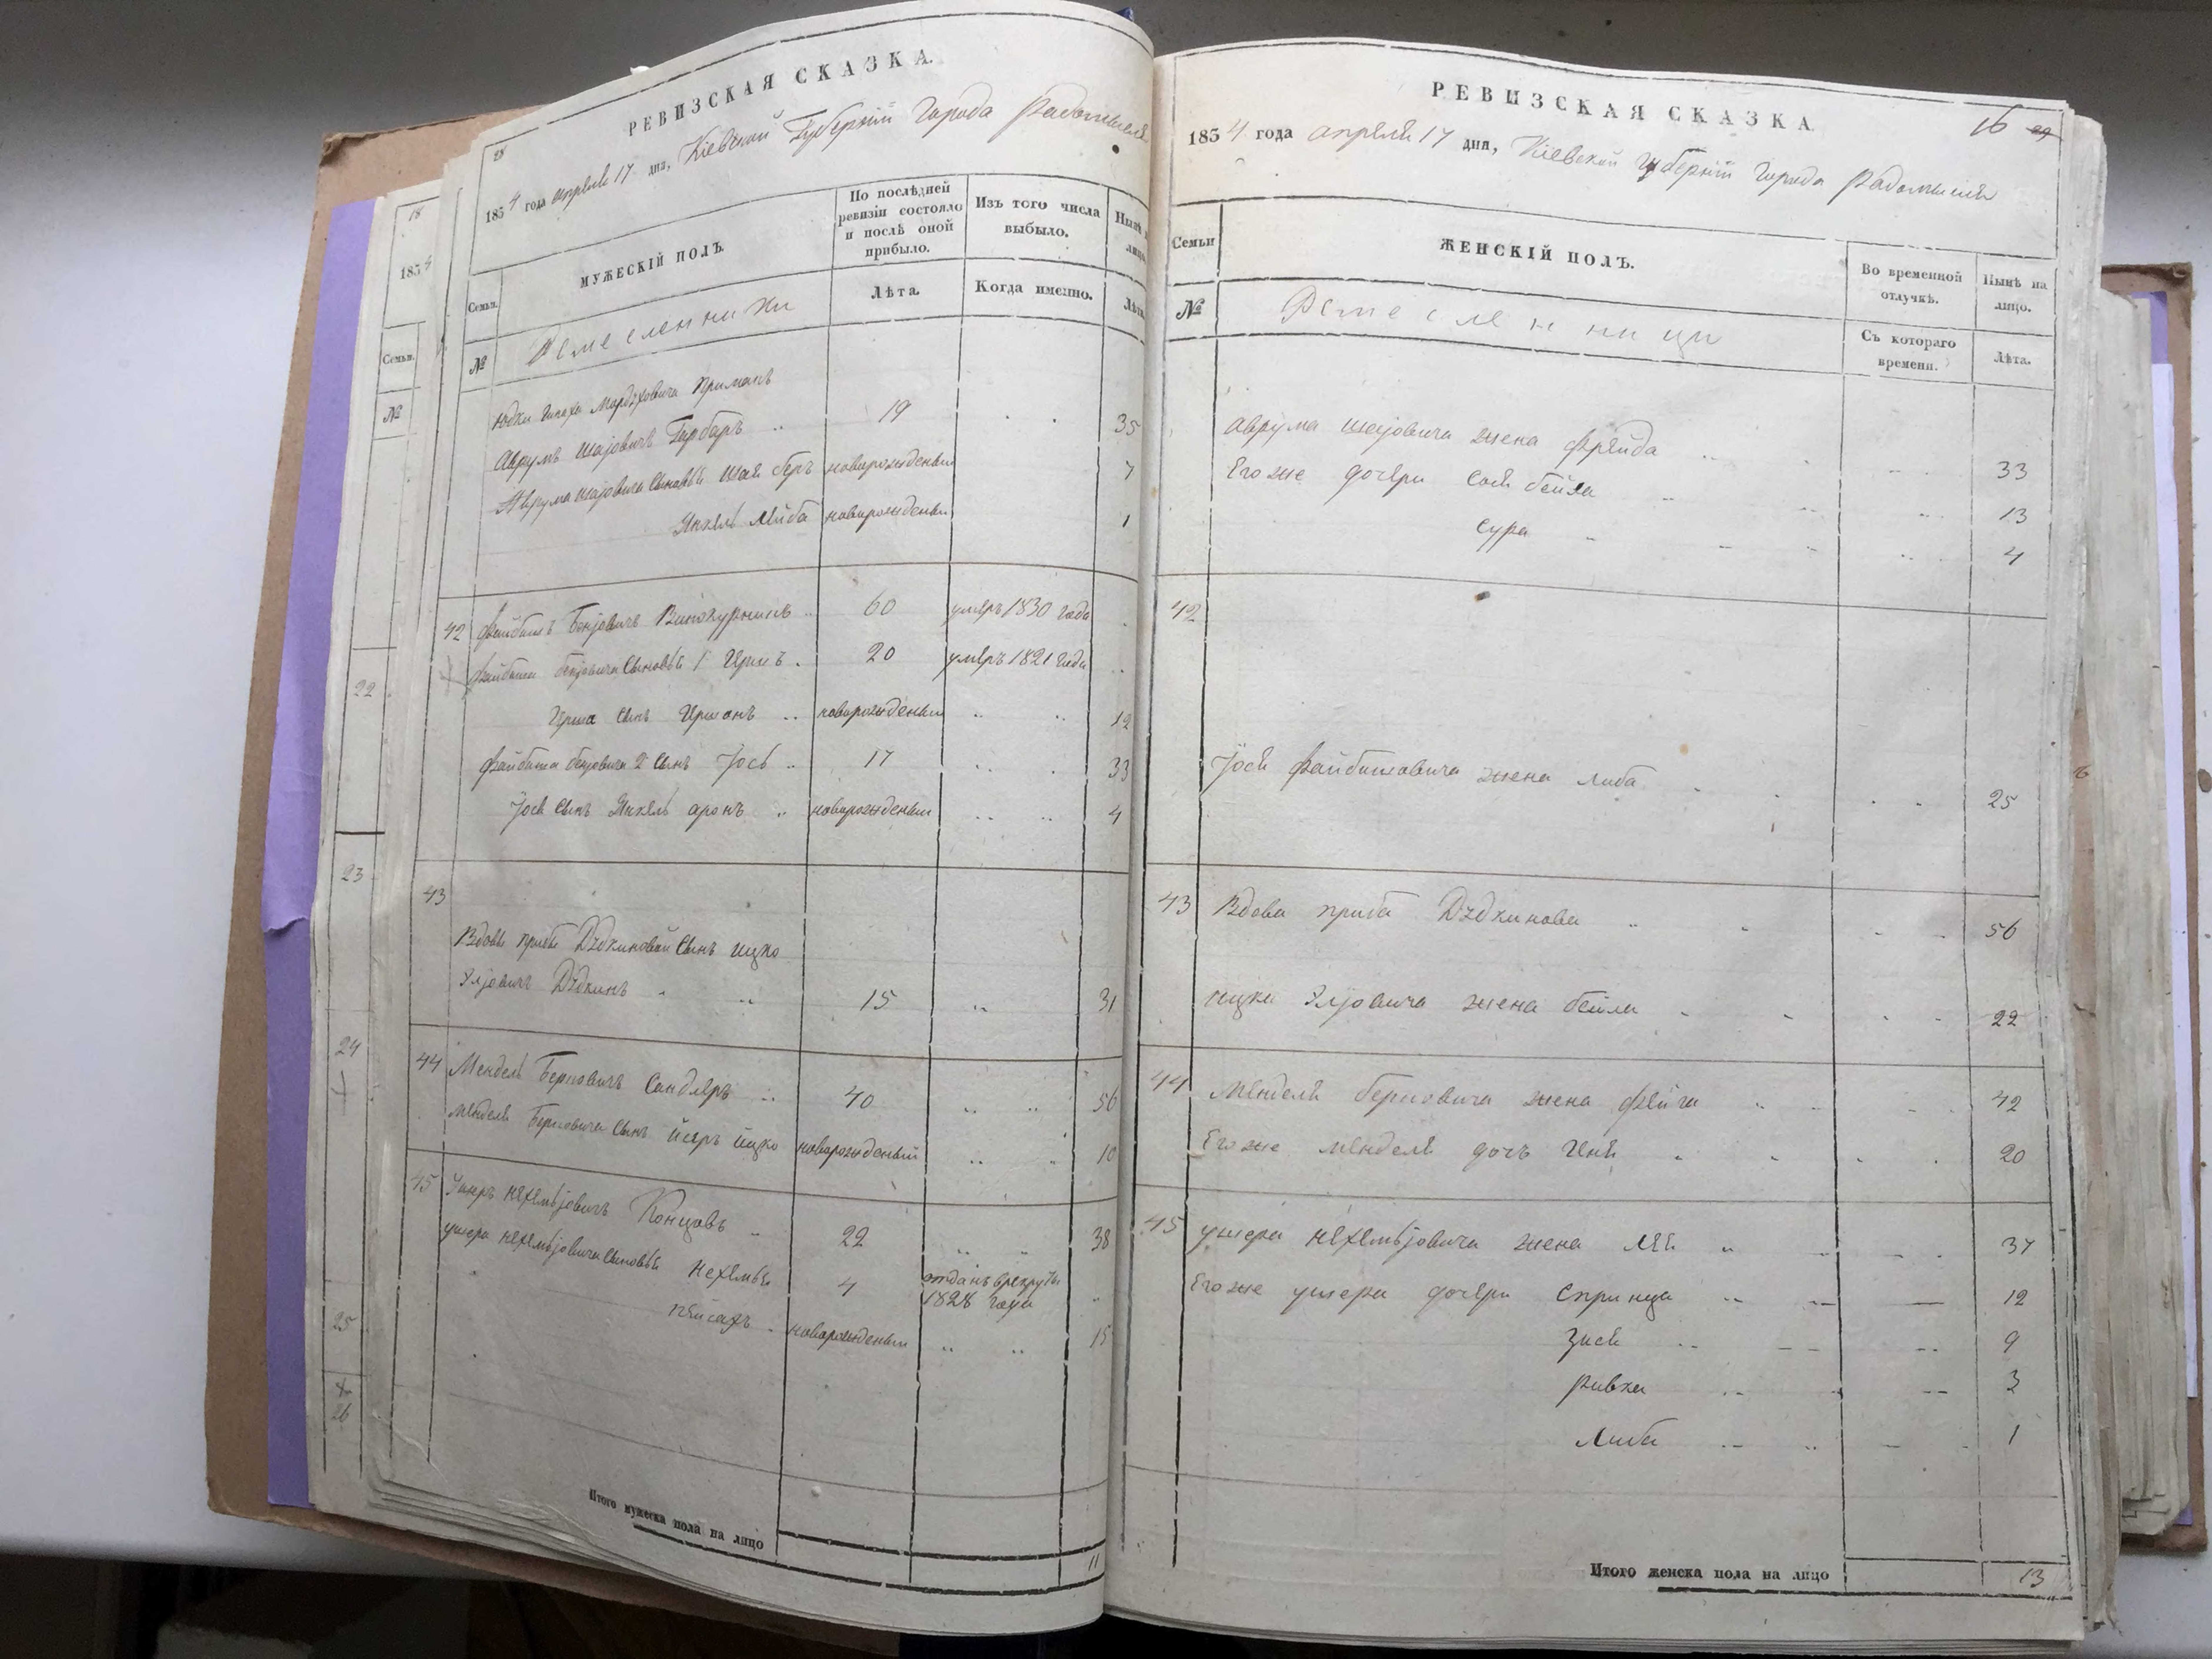 18
1834
Семьи.
№
22
23
24
25
26
28
РЕВИЗСКАЯ СКАЗКА.
1834 года апреля 17 дня, Кіевской Губерніи Города Радомысля
Семьи.
МУЖЕСКІЙ ПОЛЪ.
По послѣдней ревизіи состояло и послѣ оной прибыло.
Изъ того числа выбыло.
№
Ремесленники
Лѣта.
Когда именно.
Лѣта
Мардуховича
Аврумъ Шаjовичъ Гарбаръ 19 35
Аврума Шаjовича Сыновья Шая Беръ новорожденый 7
Янкель Лейба новорожденый 1
42 Файбишъ Бенjовичъ Винокурникъ 60 умеръ 1830 года
Файбиша Бенjовича Сыновья 1 Иршъ 20 умеръ 1821 года
Ирша Сынъ Иршонъ новорожденый 12
Файбиша Бенjовича 2 Сынъ Јось 17 33
Јося Сынъ Янкель Аронъ новорожденый 4
43
Вдовы Дудкиновой Сынъ Ицко
Элјовичъ Дудкинъ 15 31
44 Мендель Берковичъ Сандлеръ 40 56
Менделя Берковича Сынъ Ицко новорожденый 10
45 Ушеръ Нехемьјовичъ Концовъ 22 38
Ушера Нехемьјовича Сыновья Нехемья 4 отданъ врекруты 1828 года
Пейсахъ новорожденый 15
Итого мужеска пола на лицо 11
РЕВИЗСКАЯ СКАЗКА
16
29
1834 года апреля 17 дня, Кіевской Губерніи Города Радомысля
Семьи
ЖЕНСКІЙ ПОЛЪ.
Во временной отлучкѣ.
Нынѣ на лицо.
№
Ремесленници
Съ котораго времени.
Лѣта.
Аврума Шаjовича жена Фрейда 33
Его же дочери Сося Бейла 13
Сура 4
42
Јося Файбишовича жена Либа 25
43 Вдова Дудкинова 56
Ицка Элјовича жена Бейла 22
44 Менделя Берковича жена Фейга 42
Его же Менделя дочъ Геня 20
45 Ушера Нехемьјовича жена Лея 37
Его же Ушера дочери Спринца 12
Зися 9
Ривка 3
Либа 1
Итого женска пола на лицо 13